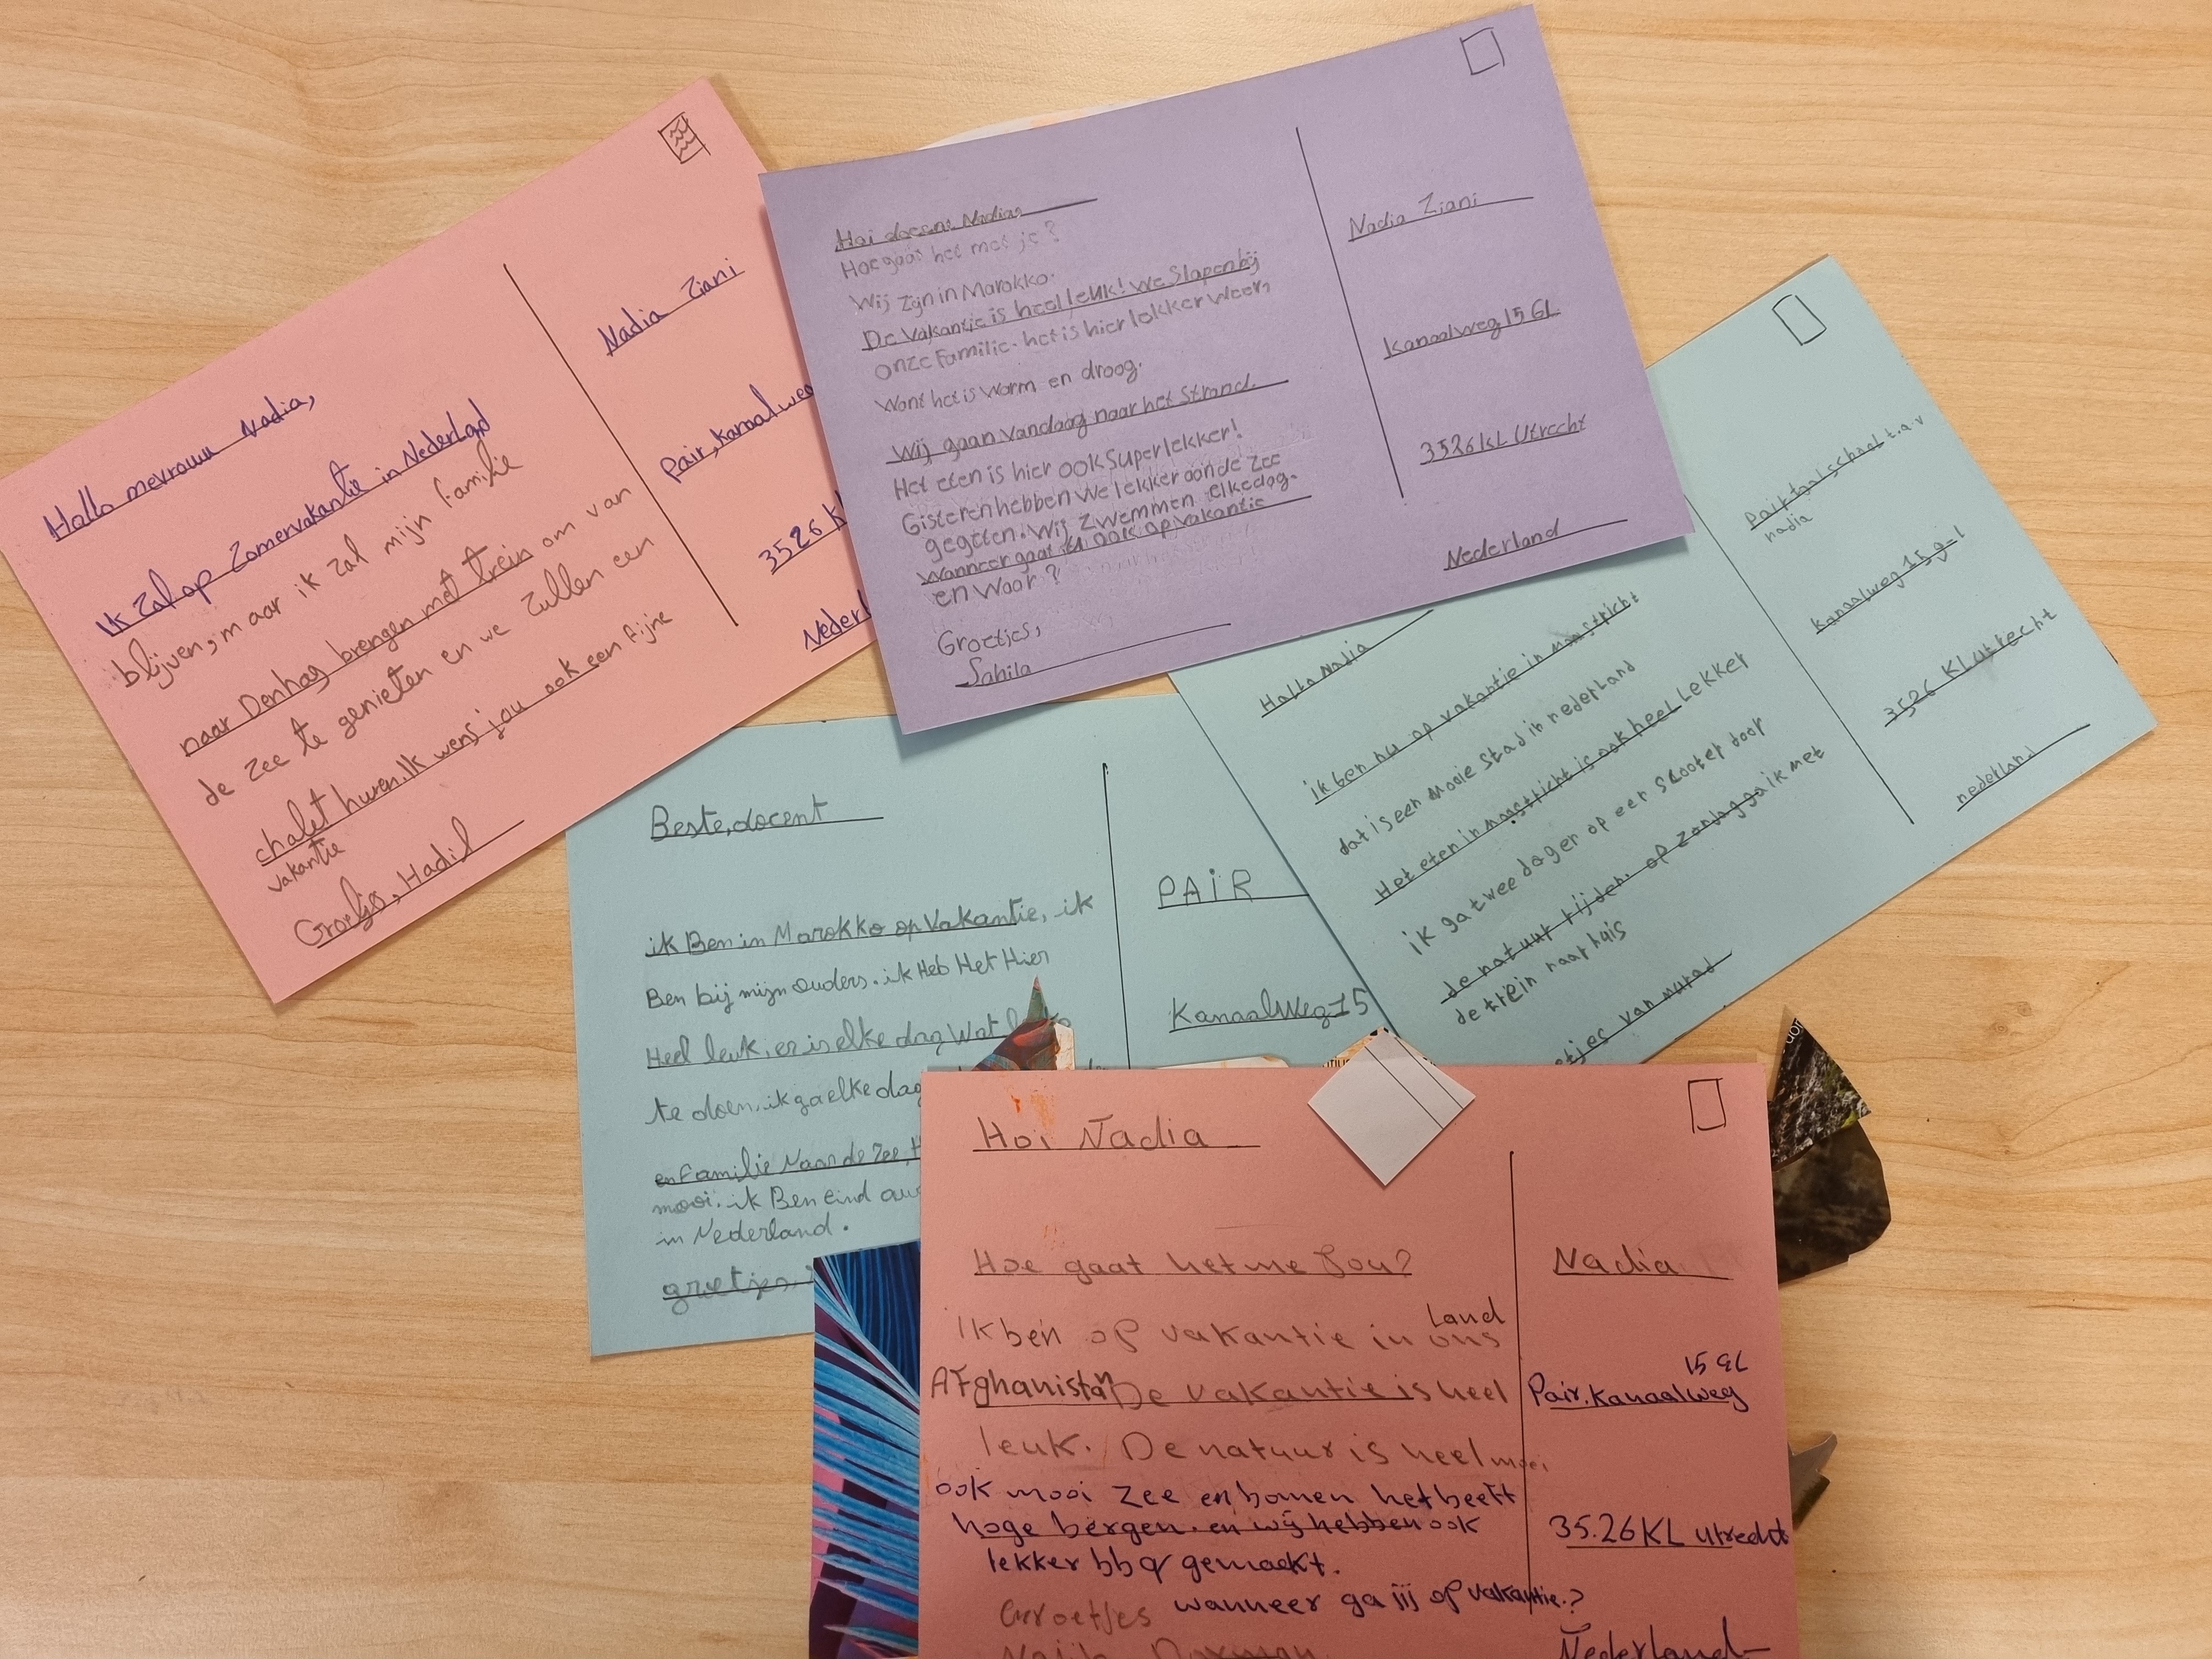 Hallo mevrouw Nadia,
Ik zal op Zomervakantie in Nederland
blijven, maar ik zal mijn familie
naar Denhag brengen met trein om van
de zee te genieten en we zullen een
chalet huren. Ik wens jou ook een fijne
vakantie
Groetjs, Hadil
Nadia Ziani
Pair, kanaalweg
3526 K
Nederl
Hoi docent Nadia
Hoe gaat het met je?
Wij zijn in Marokko.
De Vakantie is heel leuk! We Slapen bij
onze Familie. het is hier lekker weer,
Want het is warm en droog.
Wij gaan vandaag naar het Strand
Het eten is hier ook Super lekker!
Gisteren hebben we lekker aan de zee
gegeten. Wij zwemmen elke dag.
Wanneer gaat u ook op vakantie
en Waar?
Groetjes,
Sahila
Nadia Ziani
Kanaalweg 15 GL
3526 KL Utrecht
Nederland
Hallo Nadia
ik ben nu op vakantie in mastricht
dat is een mooie stad in nederland
Het eten in mastricht is ook heel Lekker
ik ga twee dagen op een scooter door
de natuur rijden. op zondag ga ik met
de trein naar huis
etjes van murad
Pair taalschool t.a.v
nadia
kanaalweg 15 g-l
3526 KL utrecht
nederland
Beste, docent
ik Ben in Marokko op Vakantie, ik
Ben bij mijn ouders. ik Heb Het Hier
Heel leuk, er is elke dag Wat
te doen. ik ga elke dag
en Familie Naar de Zee, H
mooi. ik Ben eind au
in Nederland.
groetjes,
PAIR
KanaalWeg 15
Hoi Nadia
Hoe gaat het me Jou?
Ik ben op vakantie in ons land
Afghanistan De vakantie is heel
leuk. De natuur is heel mooi
ook mooi zee en bomen het beeft
hoge bergen. en wij hebben ook
lekker bbq gemaekt.
wanneer ga jij op vakantie.?
Groetjes
Nadia
15 GL
Pair. Kanaalweg
35.26 KL utrecht
Nederland